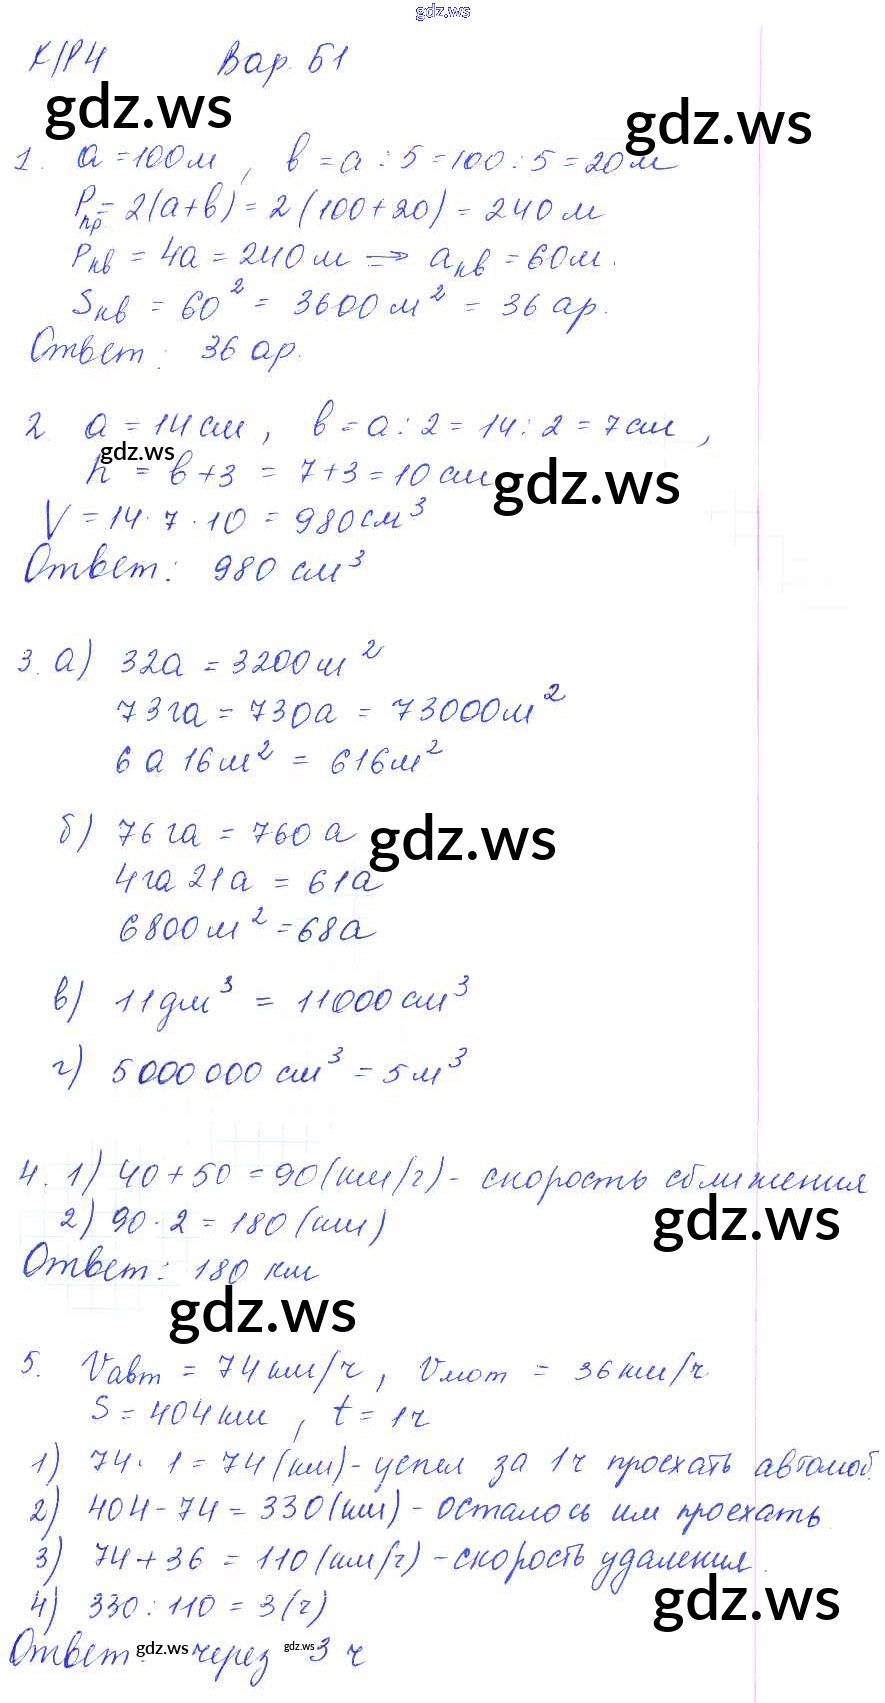 gdz.ws
К/Р4 Вар. Б1
gdz.ws gdz.ws
1. a = 100м, b = a : 5 = 100 : 5 = 20м
Pпр = 2(a+b) = 2(100+20) = 240м
Pкв = 4a = 240м ⇒ aкв = 60м.
Sкв = 60² = 3600м² = 36 ар.
Ответ: 36 ар.
2. a = 14см, b = a : 2 = 14 : 2 = 7см,
gdz.ws
h = b + 3 = 7 + 3 = 10 см
gdz.ws
V = 14 · 7 · 10 = 980см³
Ответ: 980 см³
3. а) 32а = 3200м²
73га = 730а = 73000м²
6 а 16м² = 616м²
б) 76га = 760а
gdz.ws
4га 21а = 61а
6800м² = 68а
в) 11дм³ = 11000см³
г) 5000 000 см³ = 5м³
4. 1) 40 + 50 = 90(км/ч) - скорость сближения
2) 90 · 2 = 180(км)
gdz.ws
Ответ: 180 км
gdz.ws
5. Vавт = 74км/ч, Vмот = 36км/ч
S = 404км, t = 1ч
1) 74 · 1 = 74(км) - успел за 1ч проехать автомоб.
2) 404 - 74 = 330(км) - осталось им проехать.
3) 74 + 36 = 110(км/ч) - скорость удаления.
4) 330 : 110 = 3(ч)
gdz.ws
Ответ: через 3 ч
gdz.ws gdz.ws